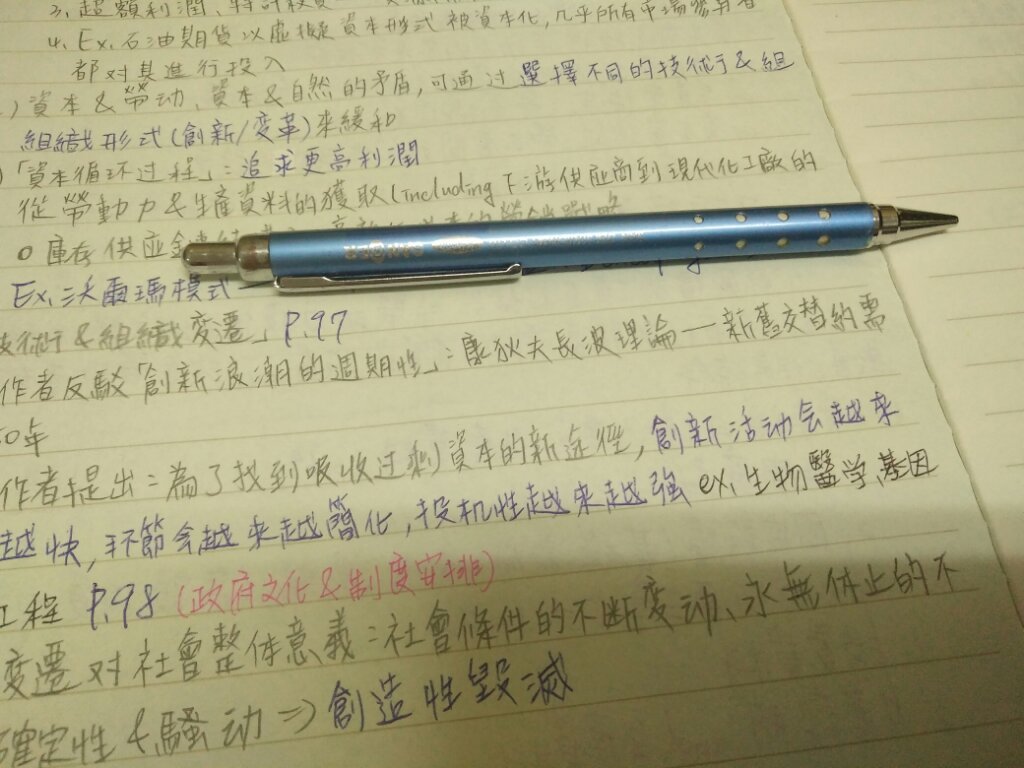 3. 超額利潤、
4. Ex. 石油期貨以虛擬資本形式被資本化,几乎所有市場參与者
都对其進行投入
) 資本&勞动、資本&自然的矛盾,可通过選擇不同的技術于&組
組織形式(創新/变革)來緩和
)「資本循环过程」:追求更高利潤
從勞動力&生產資料的獲取(including下游供应商到現代化工廠的
0庫存供应
Ex. 沃爾瑪模式
技術于&組織变遷」P.97
作者反駁「創新浪潮的週期性」:康狄夫長波理論—新舊交替約需
50年
作者提出:為了找到吸收过剩資本的新途徑,創新活动会越来
越快,环節会越来越簡化,投机性越来越強 ex. 生物醫学、基因
工程 P.98 (政府文化&制度安排)
变遷对社會整体意義:社會條件的不斷变动、永無休止的不
確定性&騷动=>創造性毀滅